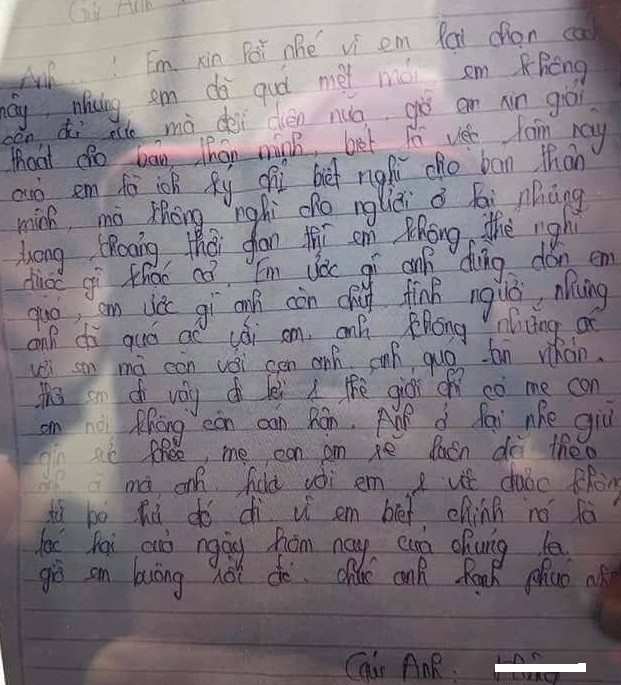 Gửi Anh
Anh....! Em xin lỗi nhé vì em lại chọn cách
này, nhưng em đã quá mệt mỏi em không
còn đủ sức mà đối diện nữa, giờ em xin giải
thoát cho bản thân mình, biết là việc làm này
quá em là ích kỷ chỉ biết nghĩ cho bản thân
mình, mà không nghĩ cho người ở lại nhưng
trong khoảng thời gian thì em không thể nghĩ
được gì khác cả. Em ước gì anh đừng dồn em
quá, em ước gì anh còn chút tình người, nhưng
anh đã quá ác với em. anh không những ác
với em mà còn với con anh, anh quá tàn nhẫn.
thà em đi vậy đi tới 1 thế giới chỉ có mẹ con
em nơi không còn oán hận. Anh ở lại nhé giữ
gìn sức khỏe, mẹ con em sẽ luôn dõi theo
mà anh hứa với em 1 việc được không
từ bỏ thứ đó đi vì em biết chính nó là
tác hại của ngày hôm nay của chúng ta.
giờ em buông rồi đó. chúc anh hạnh phúc
Gửi Anh: